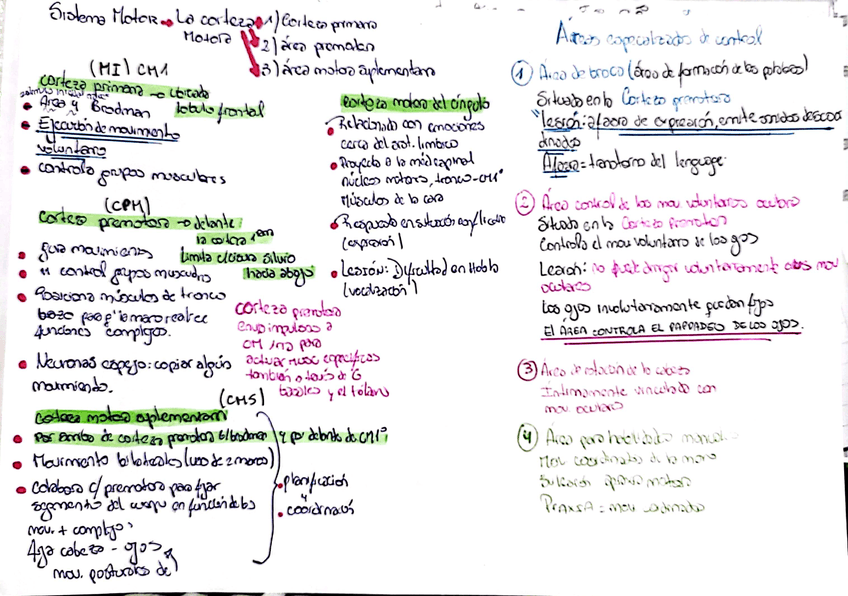 Sistema Motor → La corteza Motora
1) Corteza primaria
2) área premotora
3) área motora suplementaria
(MI) CM1
corteza primaria → ubicada lóbulo frontal
• Área 4 Brodman
• Ejecución de movimiento voluntario
• controla grupos musculares
(CPM)
Corteza premotora → delante la corteza 1ª
Limita c/cisura silvio hacia abajo
• guia movimientos
• " control grupos musculares
• Posiciona músculos de tronco
funciones complejas.
• Neuronas espejo: copiar algún movimiento.
corteza premotora
envia impulsos a
CM 1ria para
actuar musc específicos
también a través de G
basales y el tálamo
(CMS)
Corteza motora suplementaria
• Por arriba de corteza premotora 6 brodman y por delante de CM1ª
• Movimiento bilaterales (uso de 2 manos)
• Colabora c/ premotora para fijar
segmento del cuerpo en función de los
mov. + complejos
cabeza - ojos
mov. posturales de
• planificación
y
• coordinación
corteza motora del cíngulo
• Relacionado con emociones
cerca del sist. límbico
• Proyecta a la méd espinal
núcleos motores, tronco - CM1ª
Músculos de la cara
• Respuesta en situación conflictiva
(expresión)
• Lesión: Dificultad en Habla
(vocalización)
Áreas especializadas de control
① Área de broca (área de formación de las palabras)
Situado en la Corteza premotora
"Lesión: afasia de expresión, emite sonidos descoordinados
Afasia = trastorno del lenguage
② Área control de los mov voluntarios oculares
Situado en la Corteza premotora
Controla el mov voluntario de los ojos
Lesión: no puede dirigir voluntariamente mov
oculares
Los ojos involuntariamente quedan fijos
EL ÁREA CONTROLA EL PARPADEO DE LOS OJOS.
③ Área de rotación de la cabeza
Íntimamente vinculado con
mov oculares
④ Área para habilidades manuales
Mov coordinados de la mano